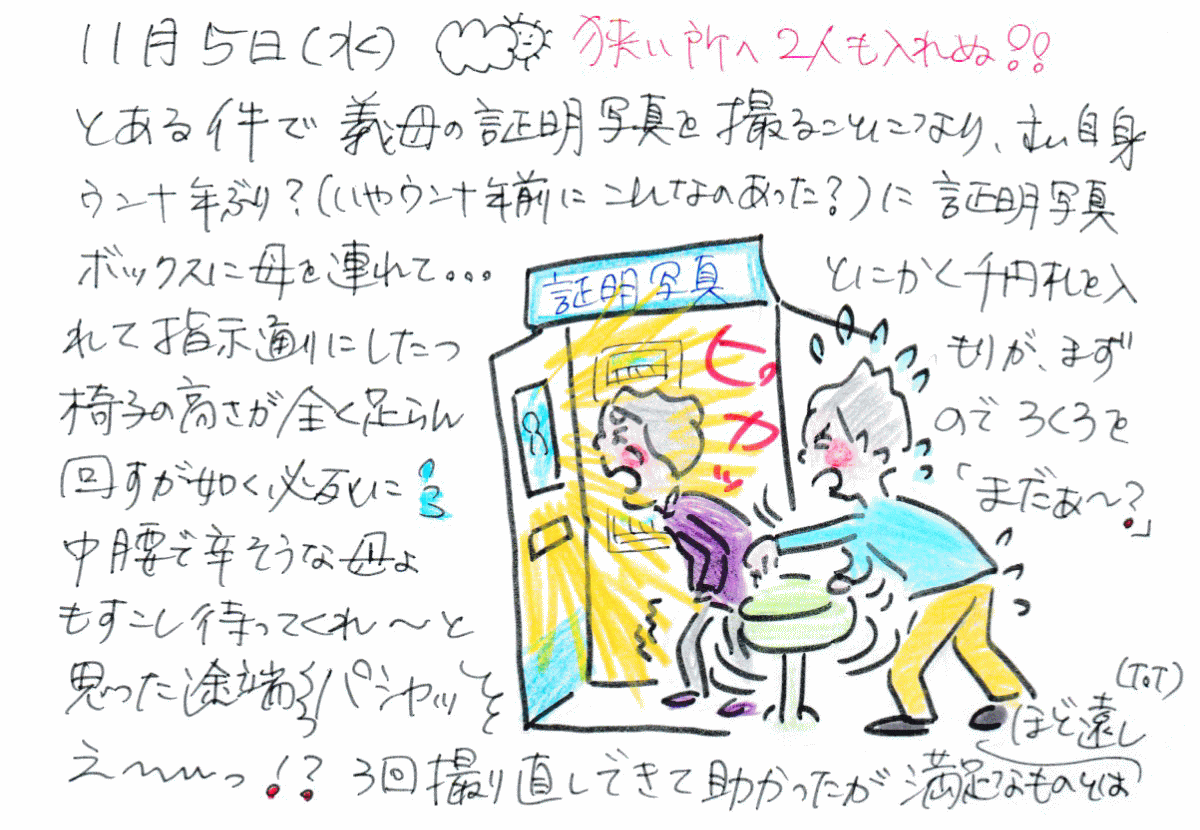 11月5日(水) 狭い所へ2人も入れぬ!!
とある件で義母の証明写真を撮ることになり、まい自身
ウン十年ぶり?(いやウン十年前にこんなのあった?)に証明写真
ボックスに母を連れて... とにかく千円札を入
れて指示通りにしたつ もりが、まず
椅子の高さが全く足らん のでろくろを
回すが如く必死に 「まだぁ〜?」
中腰で辛そうな母よ
もすこし待ってくれ〜と
思った途端パシャッと
え〜〜っ!? 3回撮り直しできて助かったが満足なものとは
ほど遠し
(ToT)
証明写真
ピッカッ